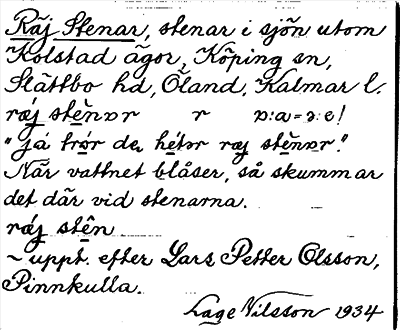 Räj Stenar, stenar i sjön utom
Kolstad ägor, Köping sn,
Slättbo hd, Öland, Kalmar l.
ræj stènɒr r ɒ:a=ɔ:e!
"Ja trór de hétər ræj stènɒr."
När vattnet blåser, så skummar
det där vid stenarna.
ræj stên
~ uppt. efter Lars Petter Olsson,
Pinnkulla.
Lage Nilsson 1934